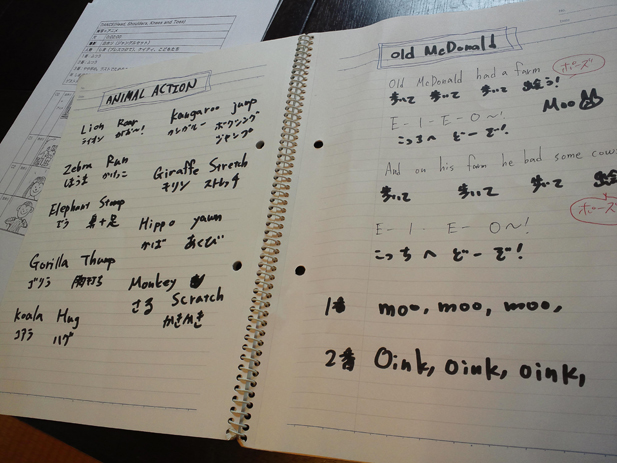 Head, Shoulders, Knees and Toes
ANIMAL ACTION
Lion Roar
ライオン がお～!
Kangaroo jump
カンガルー ボクシング
ジャンプ
Zebra Run
しまうま
Giraffe Stretch
キリン ストレッチ
Elephant Stomp
ぞう 鼻+足
Hippo yawn
かば あくび
Gorilla Thump
ゴリラ 胸打ち
Monkey
Scratch
さる
かきかき
Koala Hug
コアラ ハグ
old McDonald
Old McDonald had a farm
ポーズ
歩いて 歩いて 歩いて
Moo
E- I- E- O～!
こっちへ どーぞー!
And on his farm he had some cow
歩いて 歩いて 歩いて
ポーズ
E- I- E- O～!
こっちへ どーぞー!
1番 moo, moo, moo,
2番 Oink, oink, oink,